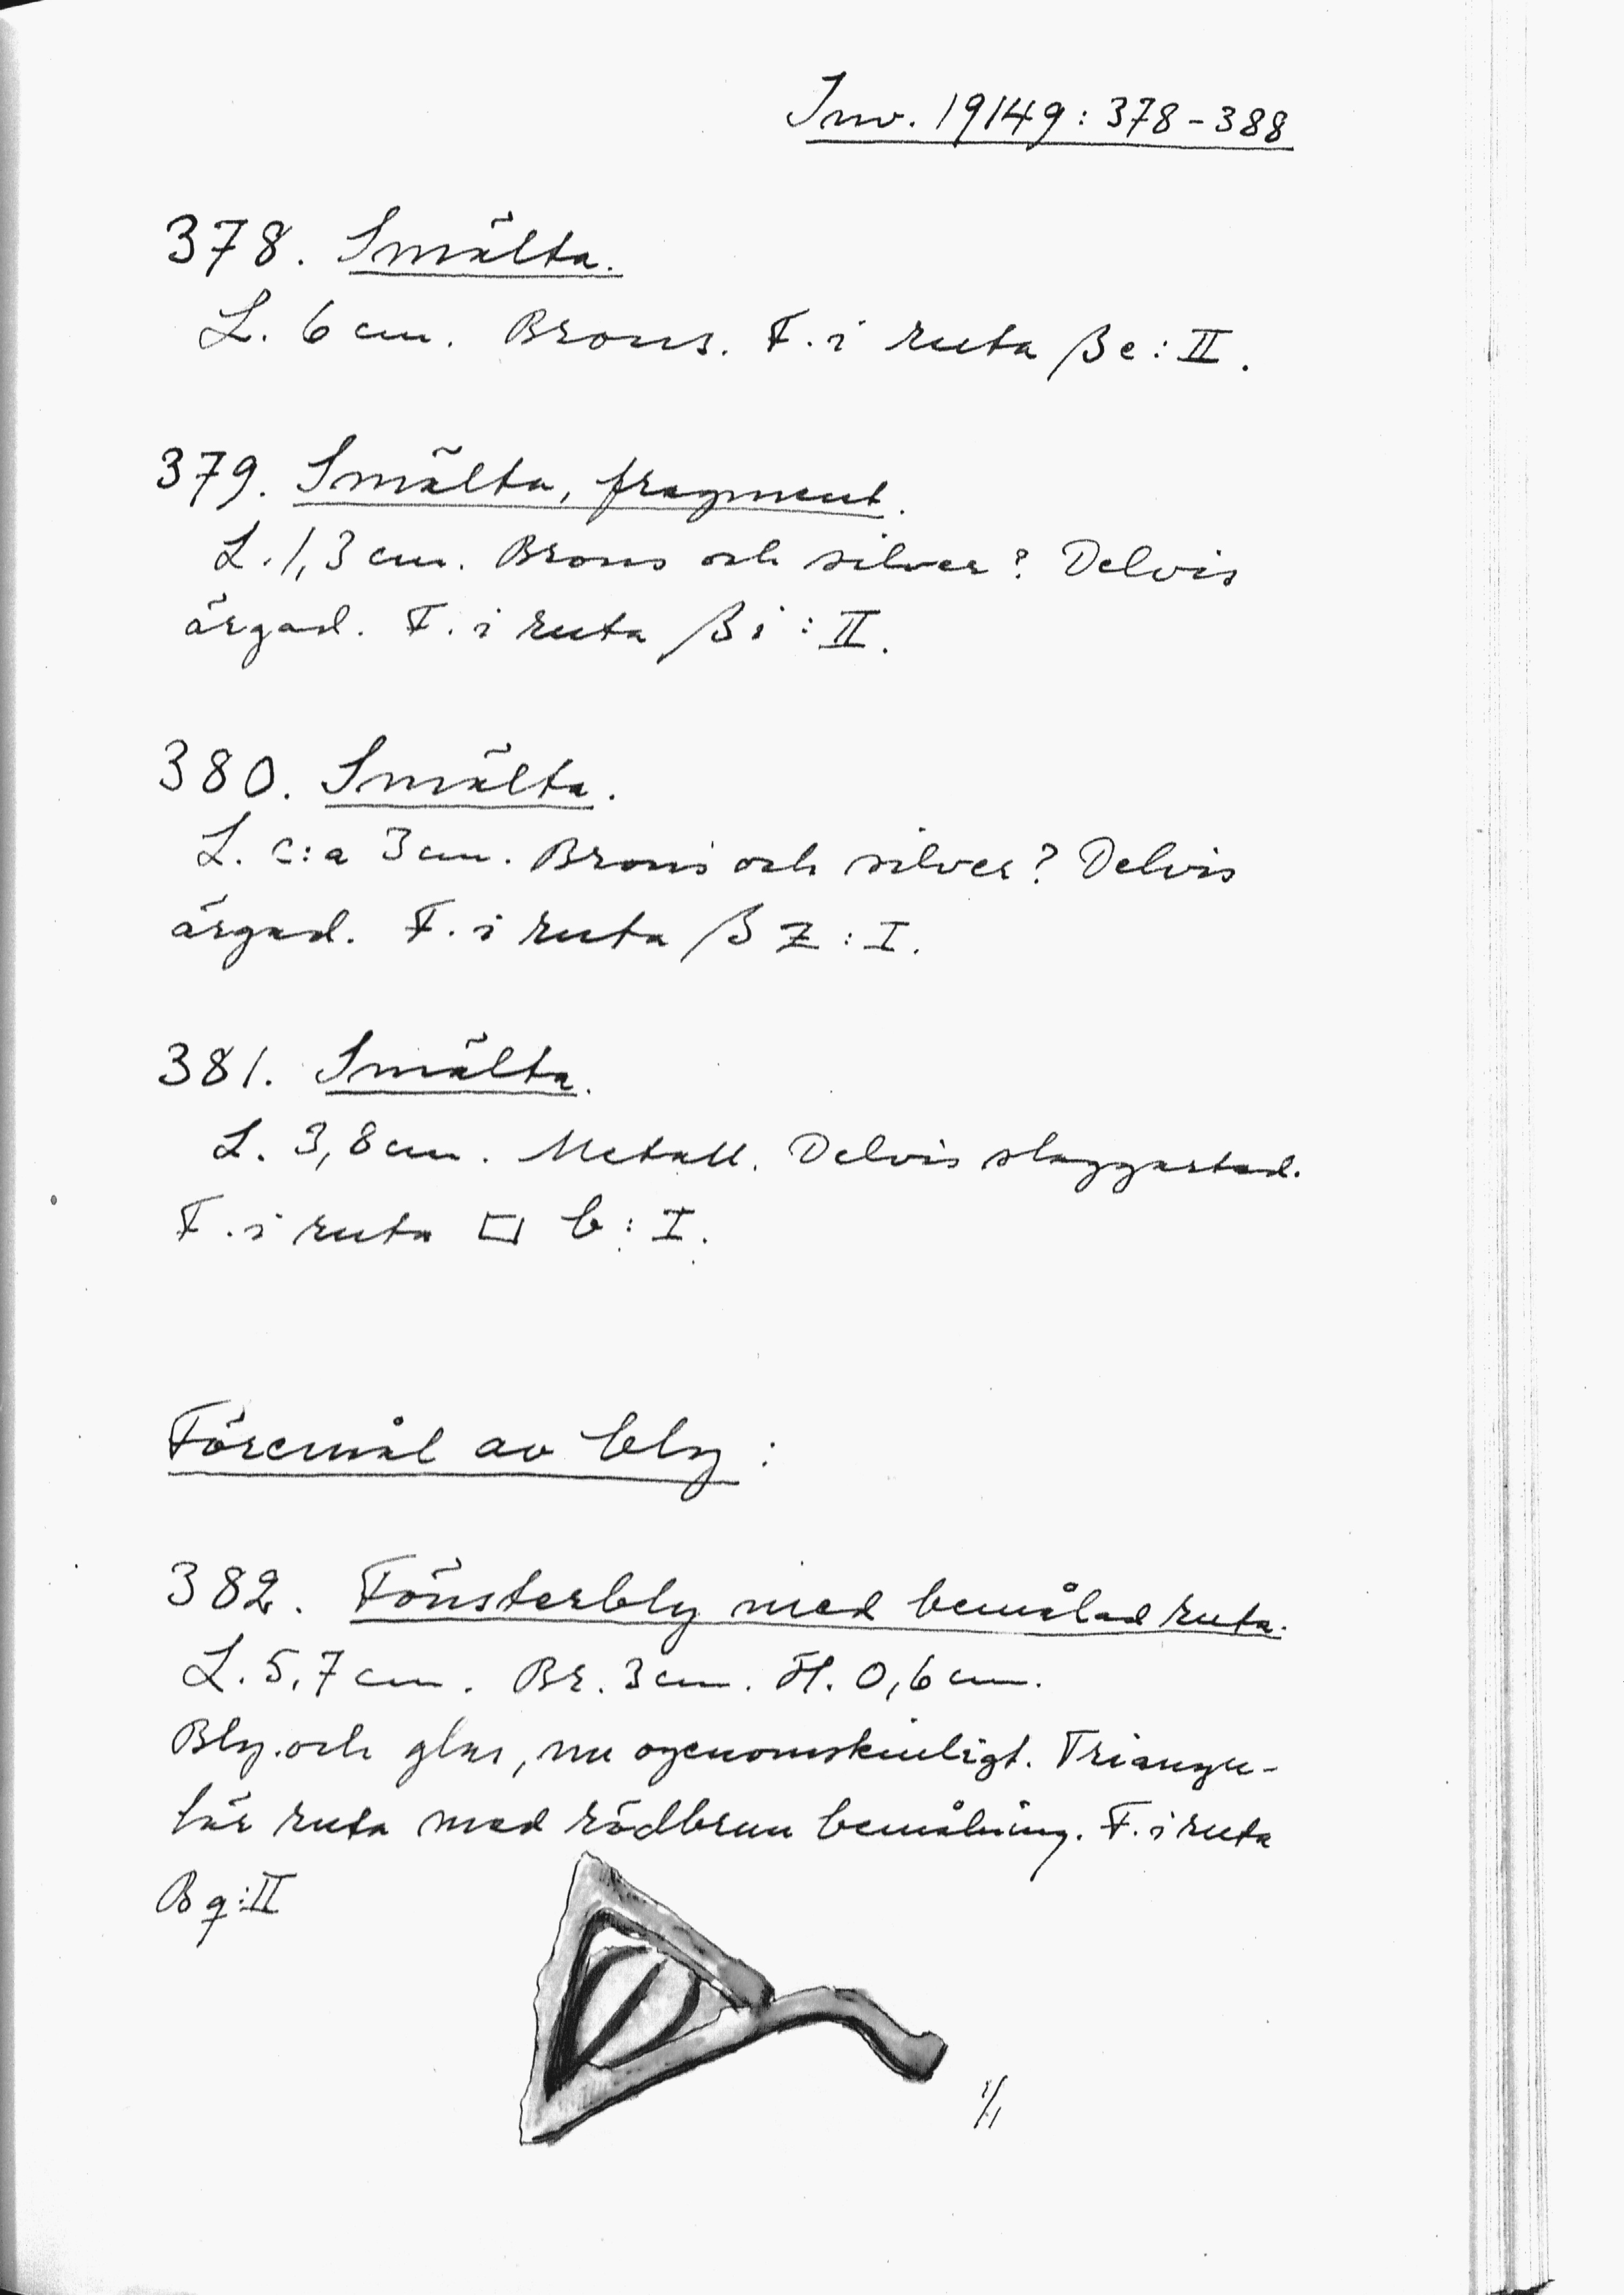 Inv. 19149:378-388
378. Smälta.
L. 6 cm. Brons. F. i ruta βe:II.
379. Smälta, fragment.
L. 1,3 cm. Brons och silver? Delvis
ärgad. F. i ruta βi:II.
380. Smälta.
L. c:a 3 cm. Brons och silver? Delvis
ärgad. F. i ruta β Z:I.
381. Smälta.
L. 3,8 cm. Metall. Delvis slaggartad.
F. i ruta □ b:I.
Föremål av bly:
382. Fönsterbly med bemålad ruta.
L. 5,7 cm. Br. 3 cm. H. 0,6 cm.
Bly och glas, nu ogenomskinligt. Triangu-
lär ruta med rödbrun bemålning. F. i ruta
B q:II
1/1